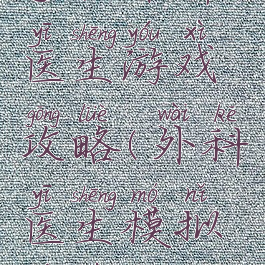 yī shēng yóu xì
医生游戏
gōng lüè wài kē
攻略(外科
yī shēng mó nǐ
医生模拟